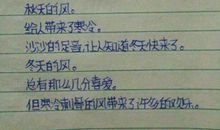 秋天的风。
给人带来了寒冷。
沙沙的足音,让人知道冬天快来了。
冬天的风。
总有那么几分喜爱。
但寒冷刺骨的风带来了许多的欢乐。